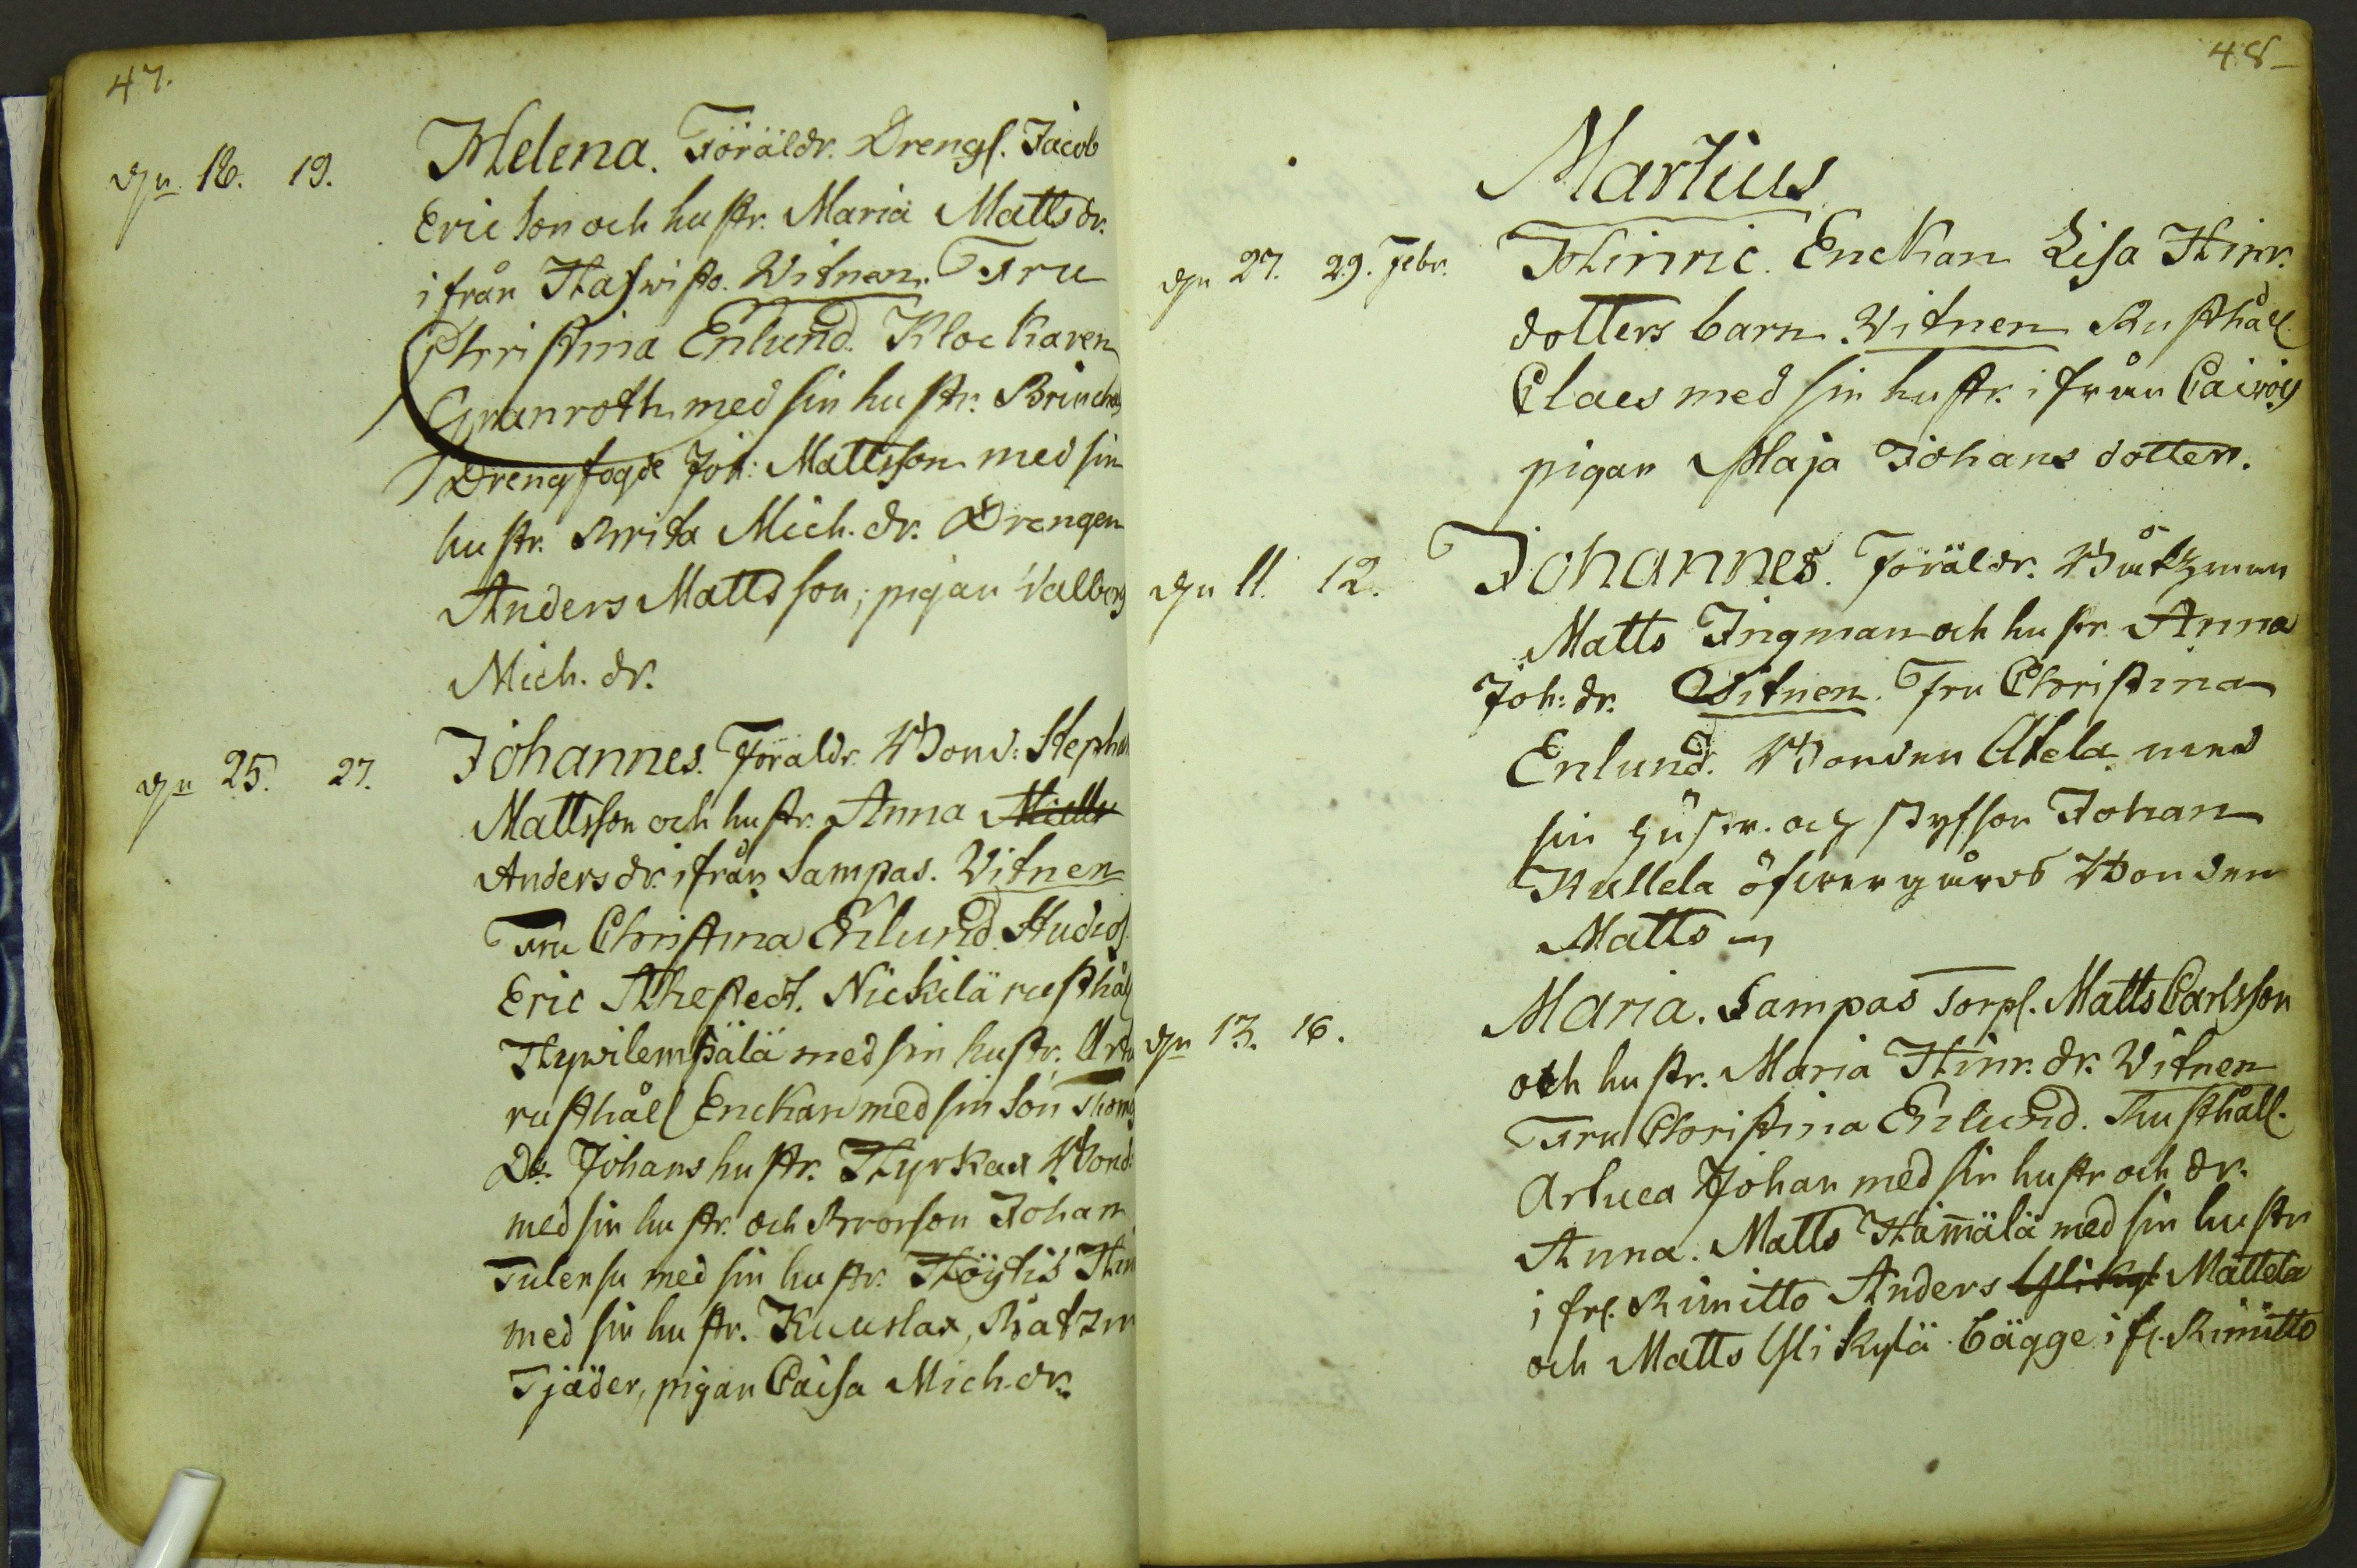 47.
dn 18. 19. Helena. Föräldr. Drengf. Jacob
Ericson och hustr. Maria Mattsdr.
ifrån Hafwisto. Witnen. Fru
Christina Enlund. Klockaren
Granroth med sin hustr.
Drengfogde Joh: Mattsson med sin
hustr. Brita Mich. dr. Drengen
Anders Mattsson; pigan Valborg
Mich. dr.
dn 25. 27. Johannes. Föräldr. Bond: Stephan
Mattsson och hustr. Anna
Anders dr. ifrån Sampas. Vitnen
Fru Christina Enlund. Studios.
Eric Nickilä rusthåll
Hywilempälä med sin hustr.
rusthåll Enckan med sin Son Thom
Do Johans hustr. Hyrkax Bond:
med sin hustr. och Brorson Johan
Tulensu med sin hustr. Höytis
med sin hustr. Kuuslax, Båtzm
Tjäder, pigan Caisa Mich. dr.
48
Martius
dn 27. 29. Febr. Hinric. Enckan Lisa Hinr.
dotters barn. Vitnen Rusthåll.
Claes med sin hustr. ifrån Cairois
pigan Maja Johans dotter.
dn 11. 12. Johannes. Föräldr. Båtzman
Matts Ingman och hustr. Anna
Joh: dr. Vitnen. Fru Christina
Enlund. Bonden Atela med
sin hustr. och styfson Johan
Kullela öfwergårds Bonden
Matts
dn 13. 16. Maria. Sampas Torp. Matts Carlsson
och hustr. Maria Hinr. dr. Vitnen
Fru Christina Enlund. Rusthåll.
Artuca Johan med sin hustr och dr.
Anna. Matts Hämälä med sin hustr
i frl. Rimitto Anders Ylikyl Mattela
och Matts Ylikylä bägge i fl. Rimitto